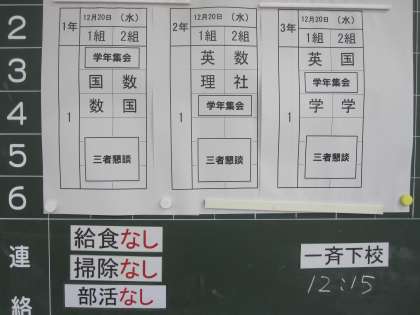 2
3
4
5
6
連
絡
1年 12月20日 (水)
1組 2組
学年集会
国 数
数 国
1
三者懇談
2年 12月20日 (水)
1組 2組
英 数
理 社
学年集会
1
三者懇談
3年 12月20日 (水)
1組 2組
英 国
学年集会
学 学
1
三者懇談
給食なし
掃除なし
部活なし
一斉下校
12:15